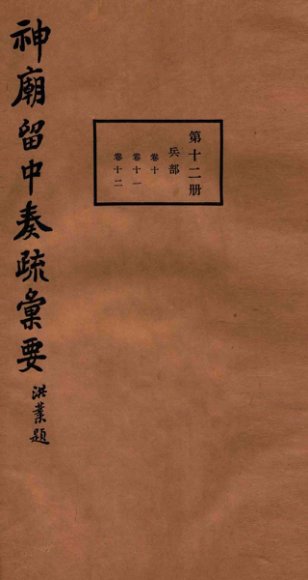 第十二册
兵部
卷十
卷十一
卷十二
神廟留中奏疏彙要
洪業題